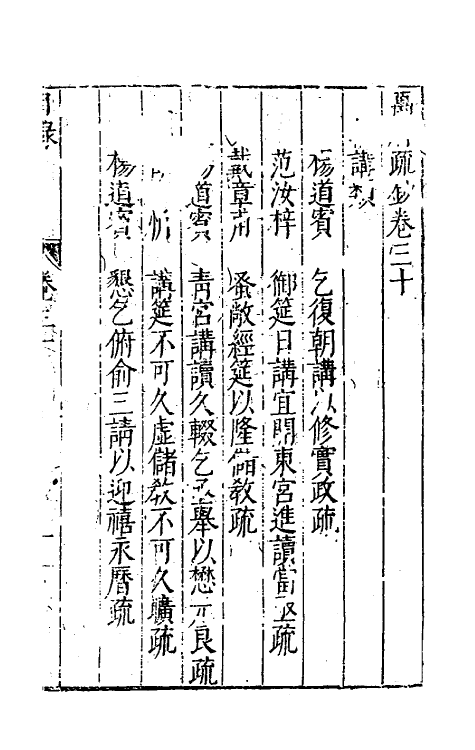 萬 疏鈔卷三十
講類
楊道賓 乞復朝講以修實政疏
范汝梓 御筵日講宜開東宮進讀當亟疏
戴章甫 蚤啟經筵以隆儲教疏
楊道賓 青宮講讀久輟乞亟舉以懋元良疏
講筵不可久虛儲教不可久曠疏
楊道賓 懇乞俯俞三請以迎禧永曆疏
目錄 卷三十 一